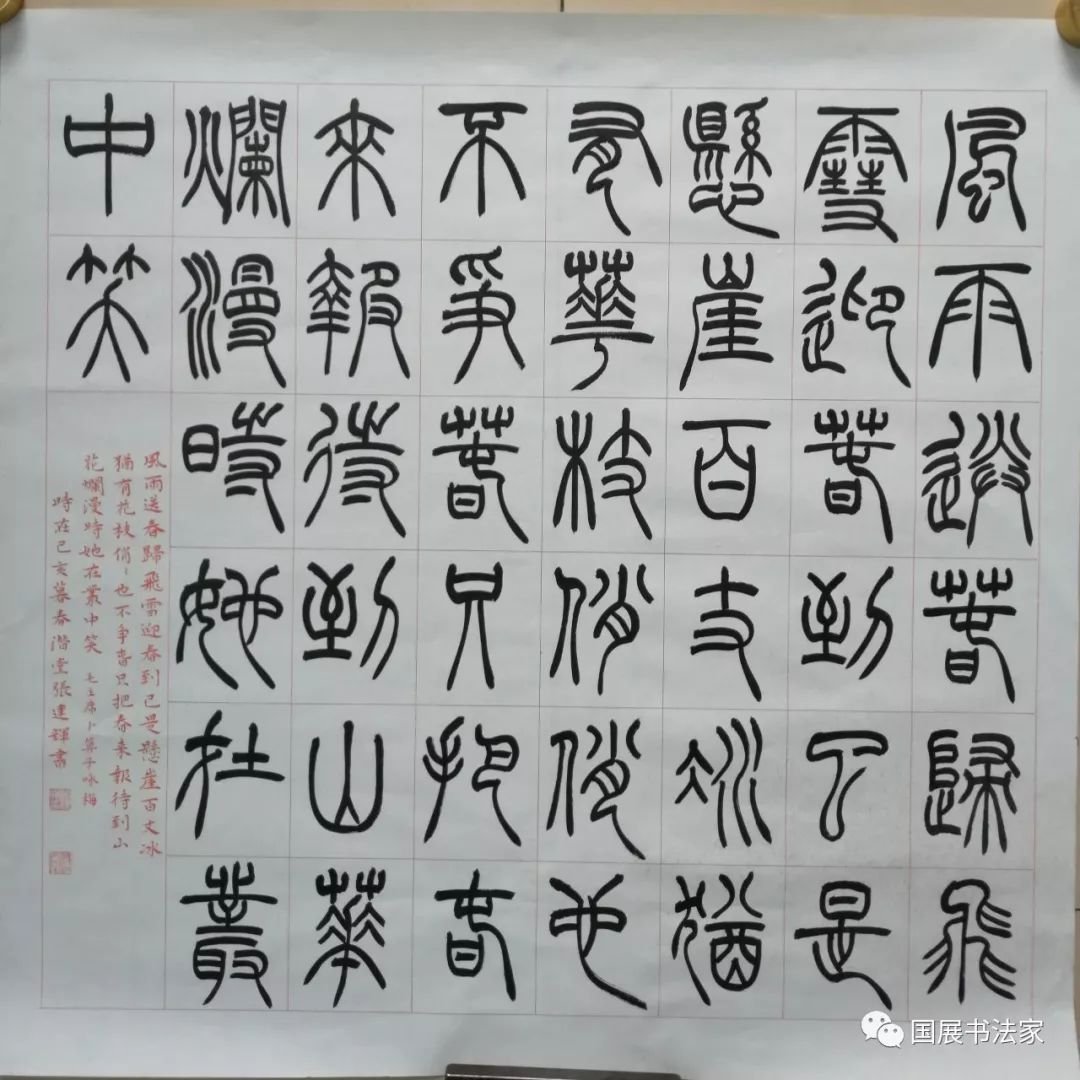 風雨送春歸飛
雪迎春到已是
懸崖百丈冰猶
有華枝俏俏也
不爭春只把春
來報待到山華
爛漫時她在叢
中笑
風雨送春歸飛雪迎春到已是懸崖百丈冰
猶有花枝俏〻也不爭春只把春来報待到山
花爛漫時她在叢中笑 毛主席卜算子咏梅
時在己亥暮春堂張建輝書
国展书法家